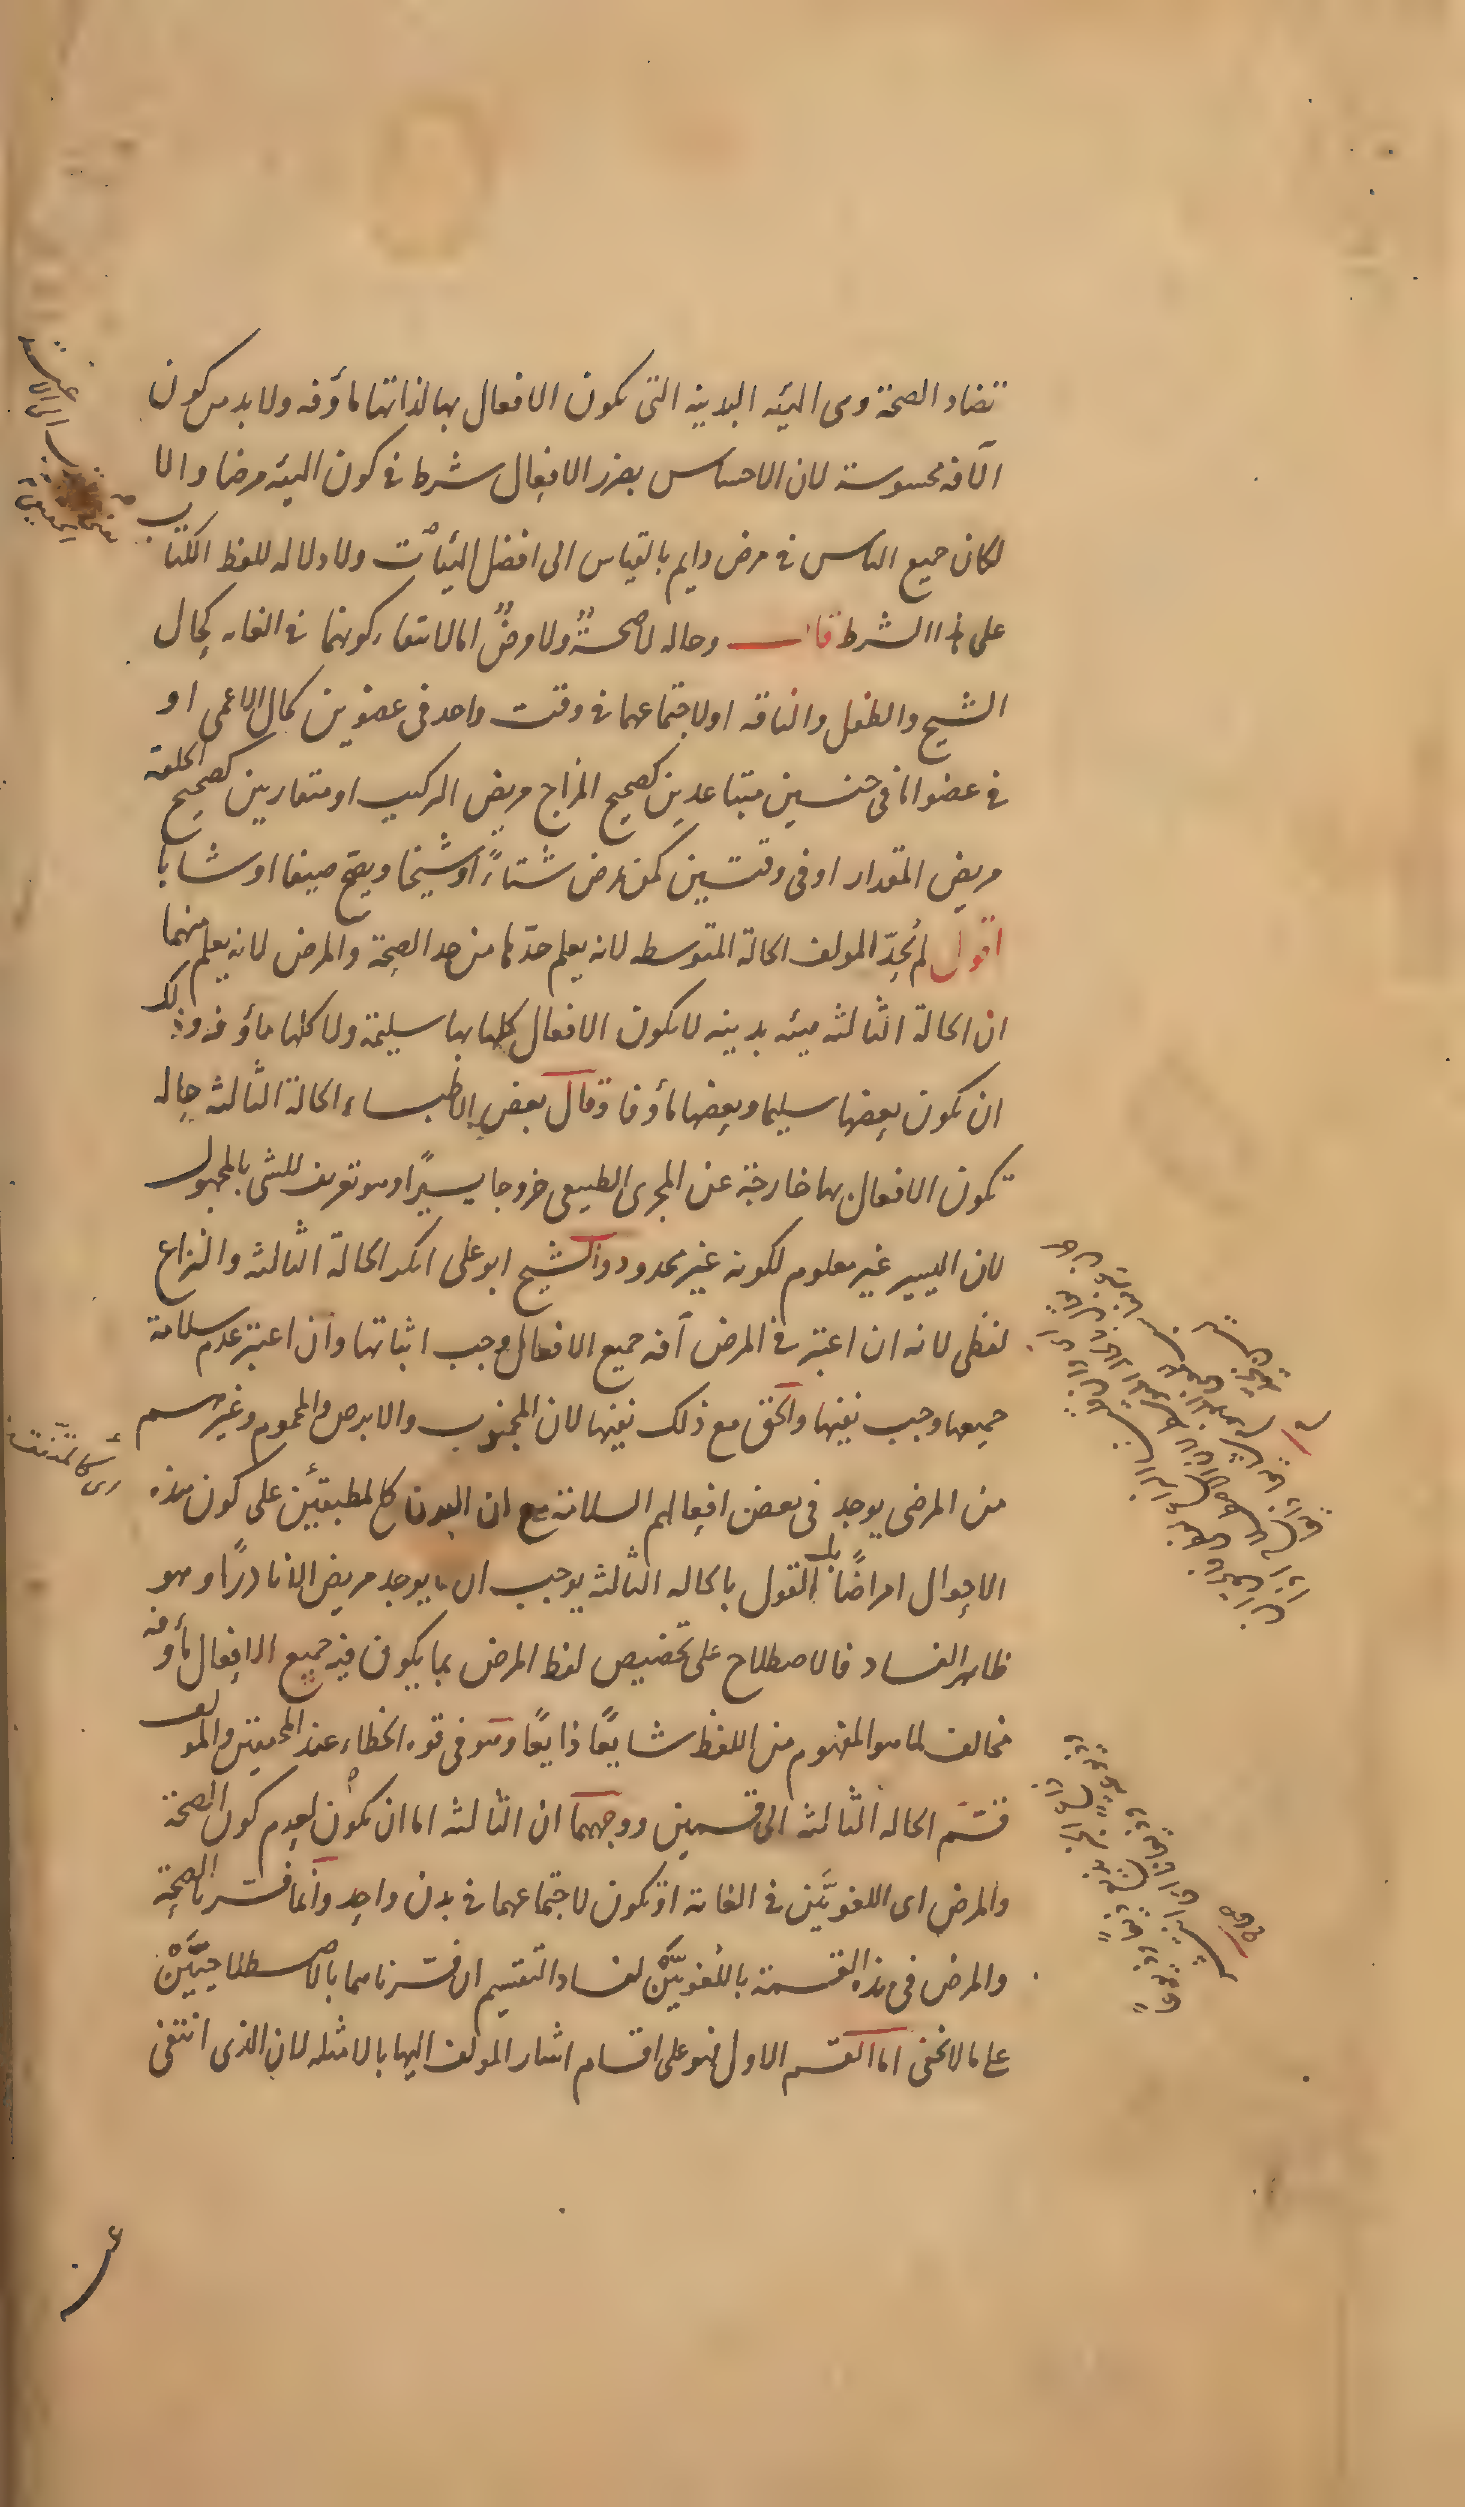 تضاد الصحة وهى الهيئه البدنيه التى يكون الافعال بها لذاتها مأوفه ولا بد من كون
الآفه محسوسة لان الاحساس بضرر الافعال شرط فى كون الهيئه مرضا والا
لكان جميع الناس فى مرض دايم بالقياس الى افضل الهيئآت ولا دلاله للفظ الكتاب
على هذا الشرط قال وحاله لا صحةٌ ولا مرضٌ اما لانتفاء كونهما فى الغايه كحال
الشيخ والطفل والناقه او لاجتماعهما فى وقت واحد فى عضوين كحال الاعمى او
فى عضو اما فى جنسين متباعدين كصحيح المزاج مريض التركيب او متقاربين كصحيح الخلقة
مريض المقدار او فى وقتين كمن يمرض شتاءً او شيخا ويصح صيفا او شابا
اقول لم يُحِدّ المولف الحالة المتوسطه لانه يعلم حدّها من حد الصحة والمرض لانه يعلم منهما
ان الحالة الثالثه هيئه بدنيه لا يكون الافعال كلها بها سليمة ولا كلها مأوفه وذلك
ان يكون بعضها سليما وبعضها مأوفا وقال بعض الاطباء الحالة الثالثه حاله
تكون الافعال بها خارجة عن المجرى الطبيعى خروجا يسيرًا وهو تعريف للشى بالمجهول
لان اليسير غير معلوم لكونه غير محدود والشيخ ابو على انكر الحالة الثالثه والنزاع
لفظى لانه ان اعتبر فى المرض آفه جميع الافعال وجب اثباتها وان اعتبر عدم سلامة
جميعها وجب نفيها والحق مع ذلك نفيها لان المجذوب والابرص والمحموم وغيرهم
من المرضى يوجد فى بعض افعالهم السلامة مع ان البدن كالمطبقين على كون هذه
الاحوال امراضًا بل القول بالحاله الثالثه يوجب ان لا يوجد مريض الا نادرًا وهو
ظاهر الفساد فالاصطلاح على تخصيص لفظ المرض بما يكون فيه جميع الافعال مأوفه
مخالف لما هو المفهوم من اللفظ شايعًا ذايعًا وهو فى قوه الخطاء عند المحققين والمولف
قسّم الحاله الثالثه الى قسمين ووجههما ان الثالثه اما ان يكون لعدم كون الصحة
والمرض اى اللغويَّين فى الغاية او تكون لاجتماعهما فى بدن واحد وانما فسّرنا الصحة
والمرض فى هذه القسمة باللُغويَّين لفساد التقسيم ان فسّرناهما بالاصطلاحيَّيْن
على ما لا يخفى اما القسم الاول فهو على اقسام اشار المولف اليها بالامثله لان الذى انتفى
عن